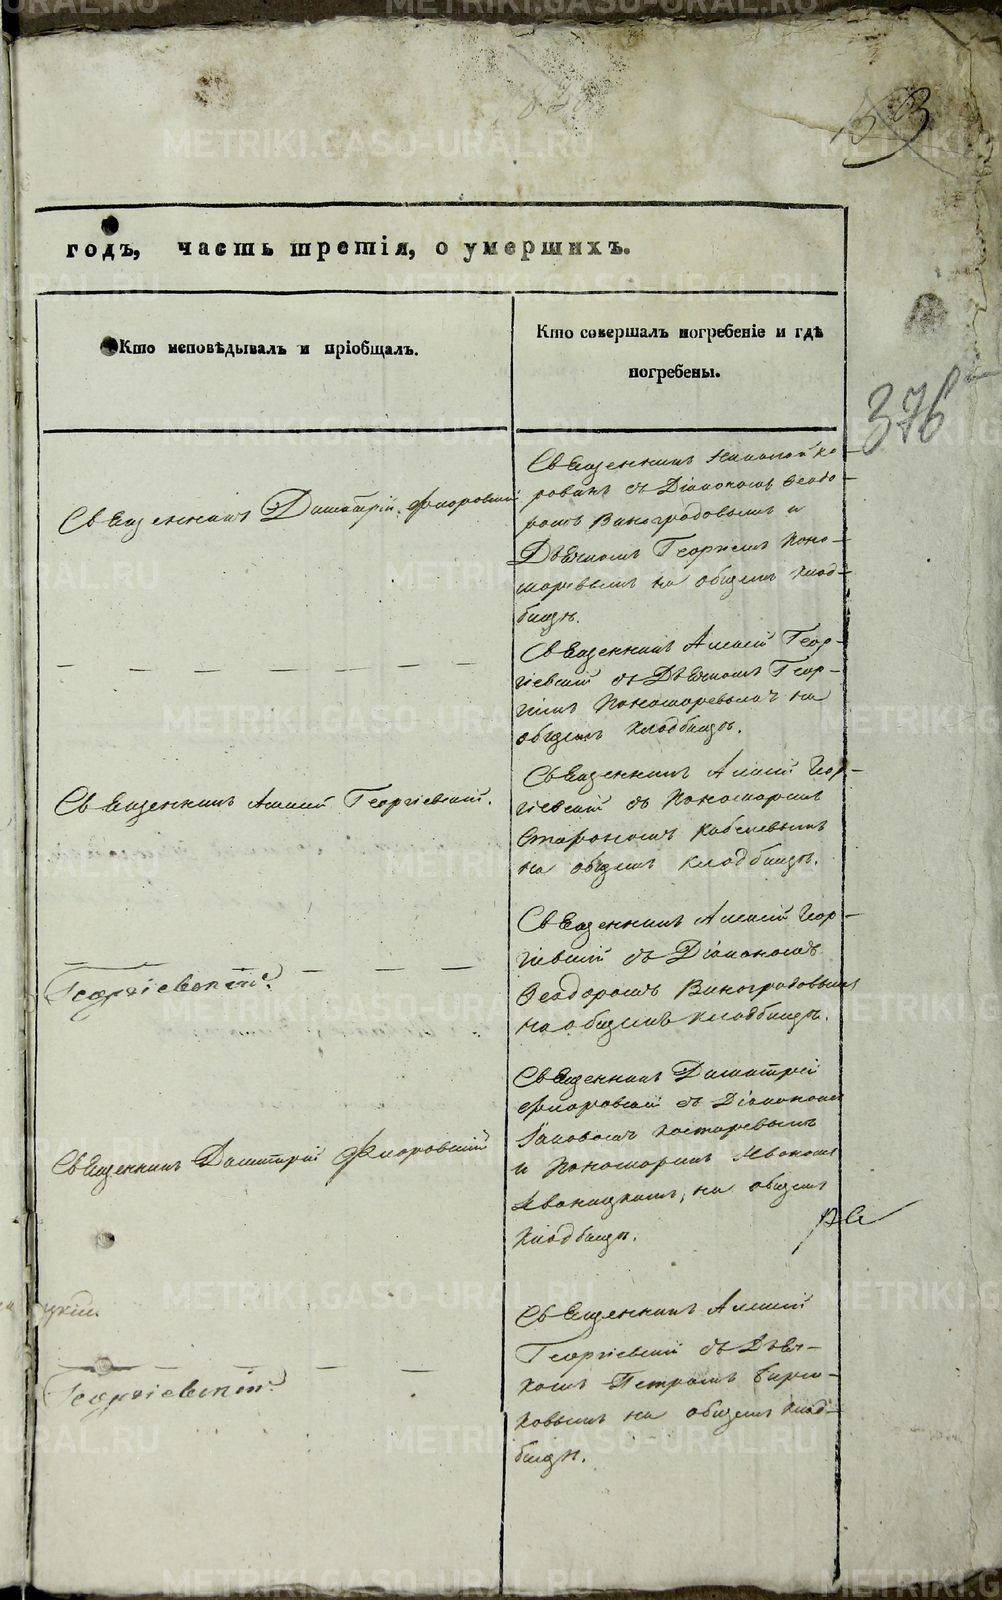 годъ, часть третія, о умершихъ.
Кто исповѣдывалъ и пріобщалъ.
Кто совершалъ погребеніе и гдѣ
погребены.
376
Священникъ Димитрій Флоровскій
Священникъ Николай Ко-
ровинъ съ Діакономъ Ѳеодо-
ромъ Виноградовымъ и
Дьячкомъ Георгіемъ Поно-
маревымъ на общемъ клад-
бищѣ.
Священникъ Алексій Геор-
гіевскій съ Дьячкомъ Геор-
гіемъ Пономаревымъ на
общемъ кладбищѣ.
Священникъ Алексій Георгіевскій.
Священникъ Алексій Геор-
гіевскій съ Пономаремъ
Кобелевымъ
на общемъ кладбищѣ.
Георгіевскій.
Священникъ Алексій Геор-
гіевскій съ Діакономъ
Ѳеодоромъ Виноградовымъ
на общемъ кладбищѣ.
Священникъ Димитрій Флоровскій
Священникъ Димитрій
Флоровскій съ Діакономъ
Іаковомъ Костаревымъ
и Пономаремъ
на общемъ
кладбищѣ.
Георгіевскій.
Священникъ Алексій
Георгіевскій съ Дьяч-
комъ Петромъ Бирю-
ковымъ на общемъ клад-
бищѣ.
METRIKI.GASO-URAL.RU